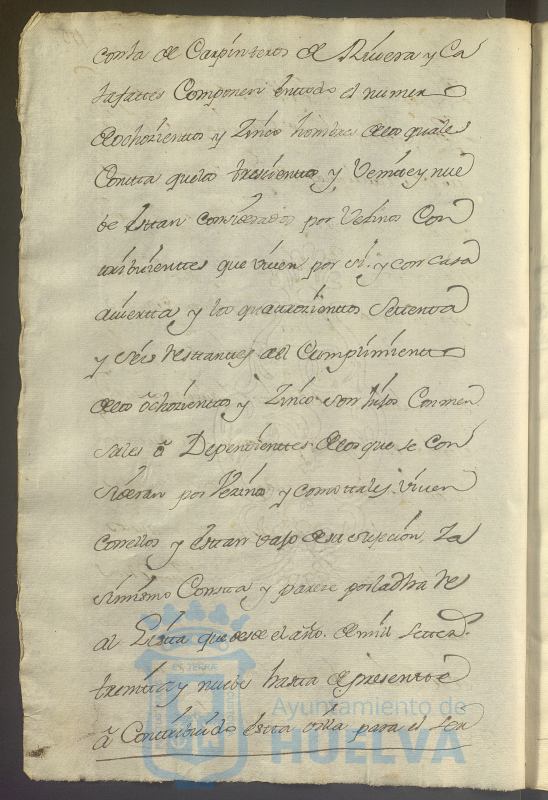 con la de Carpinteros de Rivera y Ca
lafattes Componen entodo el numero
deochozientos y Zinco hombres delos quales
Consta quelos trescientos y Veinte y nue
be estan considerados por Vezinos Con
tribuienttes que viven por si y con casa
avierta y los quattrozientos Settenta
y seis restantes al Cumplimiento
delos ochozientos y Zinco son hijos Comen
sales ô Dependienttes delos que se con
sideran por Vezinos y como ttales viven
con ellos y estan vajo de su sujecion. Ya
simismo Consta y pareze por la dha Re
al Lista que desde el año de mil settez.s
treintta y nuebe hasta el presentte
â Contribuido esta villa para el ser
ES TERRÆ
Ayuntamiento de
HUELVA